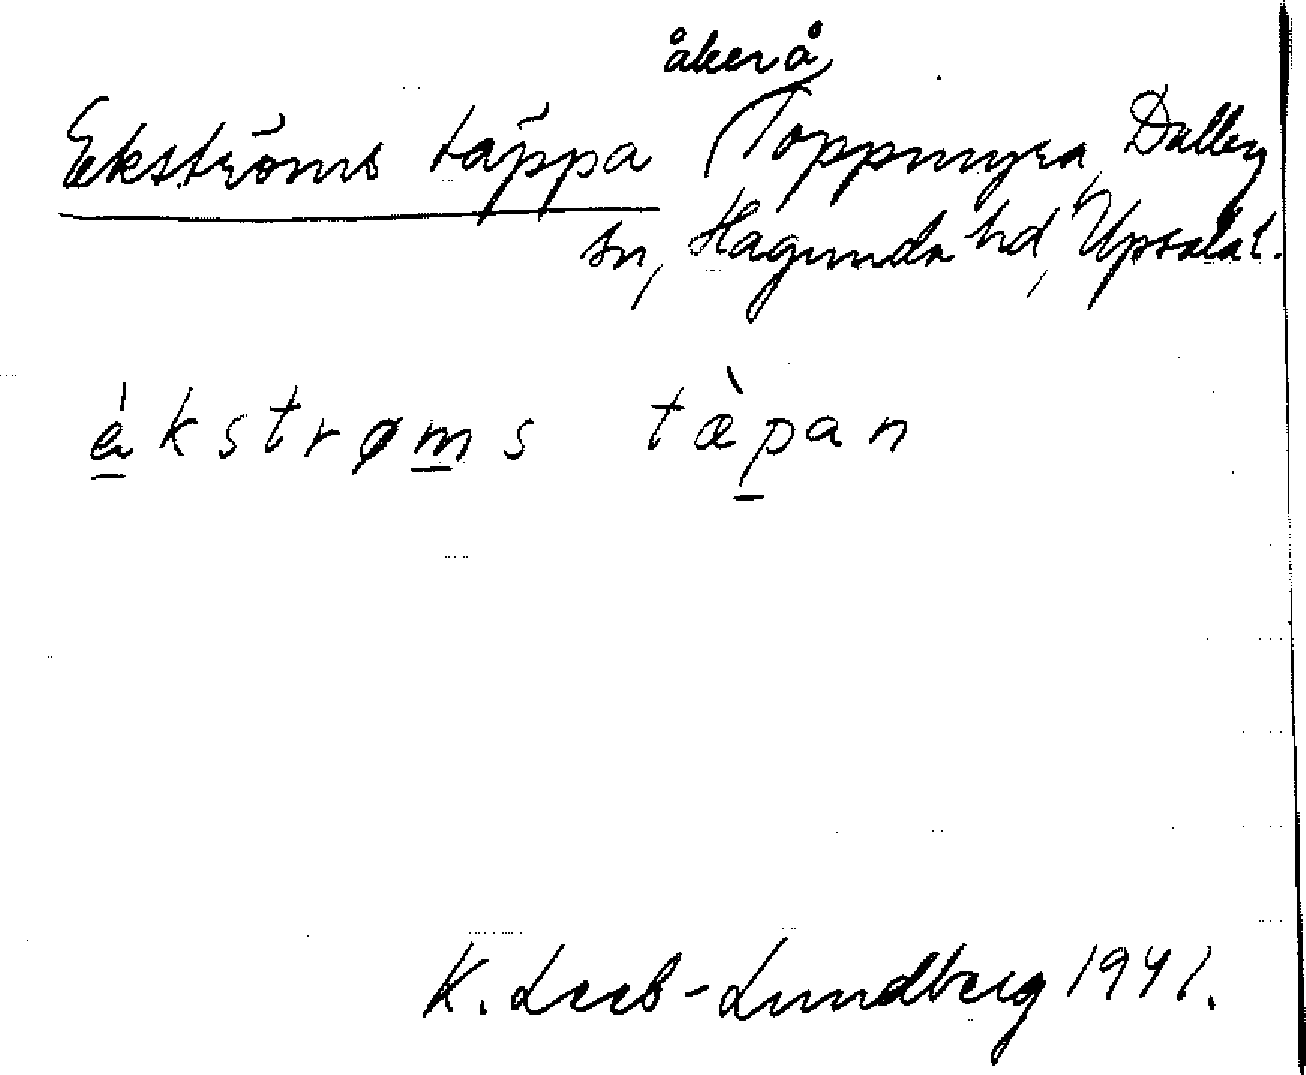 åker å
Ekströms täppa Toppmyra, Dalby
sn, Hagunda hd, Upsala l.
ékstrøms tæ̀pan
K. Leeb-Lundberg 1941.